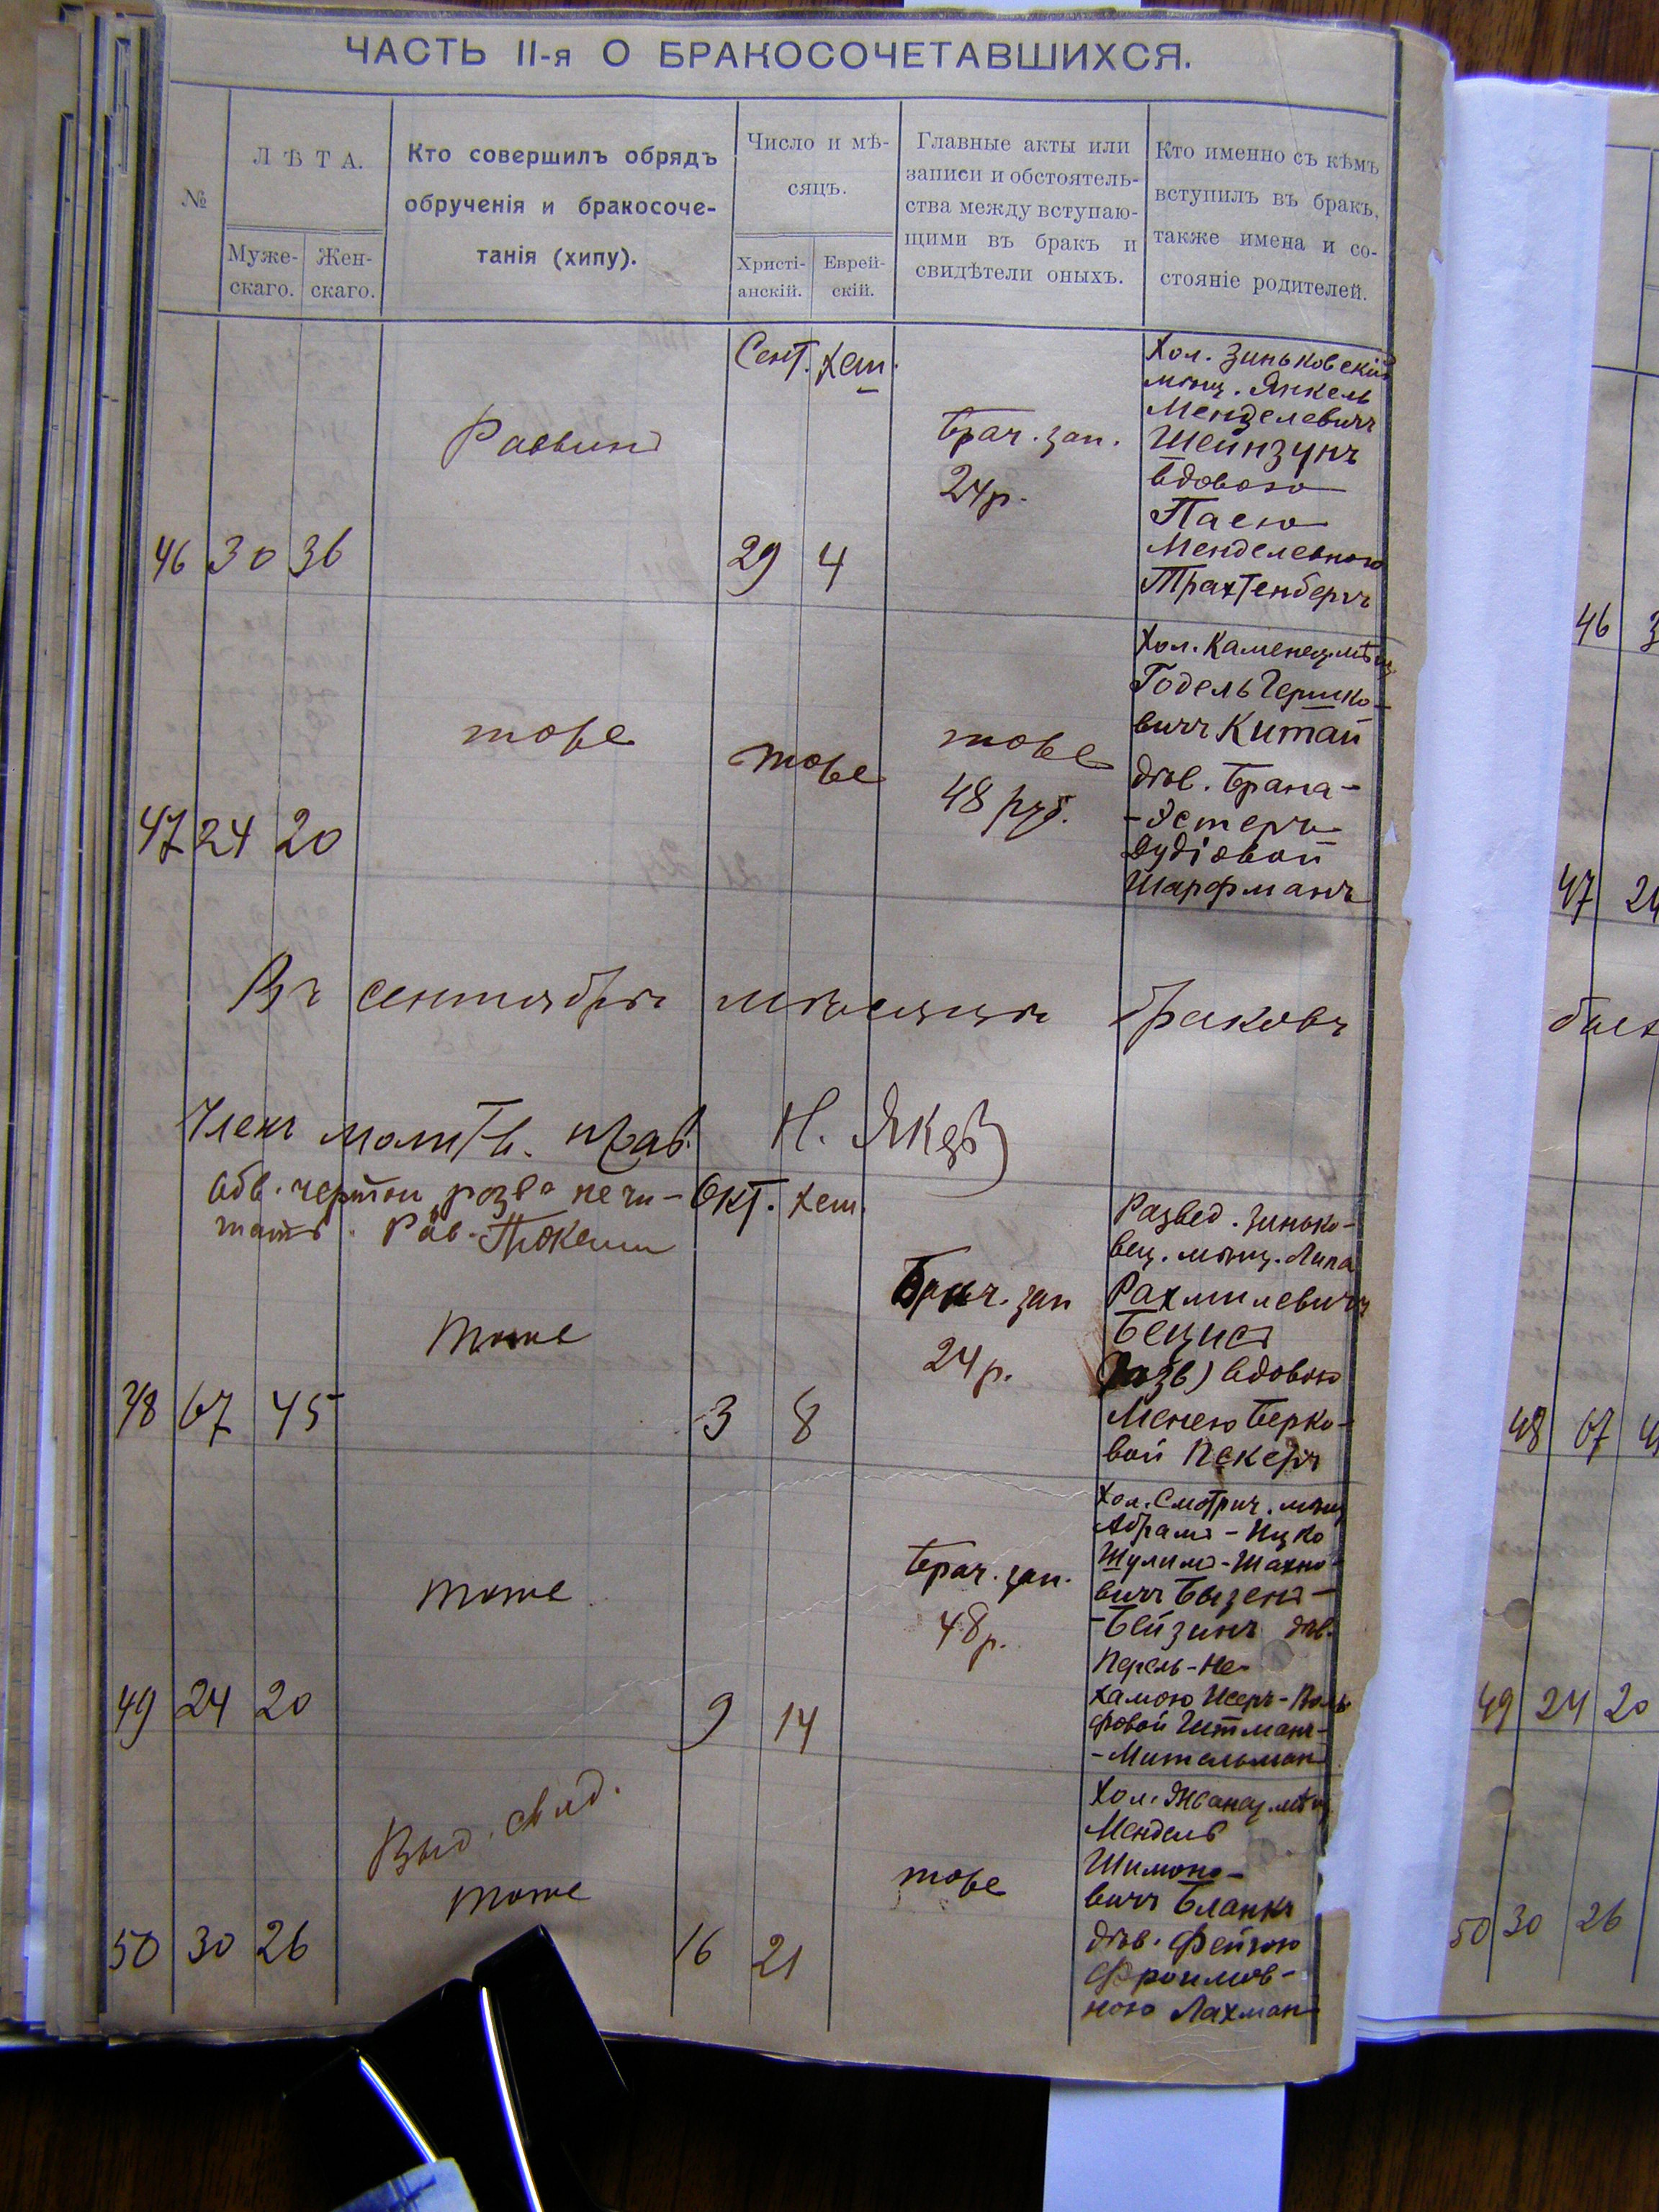 ЧАСТЬ II-я О БРАКОСОЧЕТАВШИХСЯ.
№
ЛѢТА.
Муже-
скаго.
Жен-
скаго.
Кто совершилъ обрядъ
обрученія и бракосоче-
танія (хипу).
Число и мѣ-
сяцъ.
Христі-
анскій.
Еврей-
скій.
Главные акты или
записи и обстоятель-
ства между вступаю-
щими въ бракъ и
свидѣтели оныхъ.
Кто именно съ кѣмъ
вступилъ въ бракъ,
также имена и со-
стояніе родителей.
46 30 36
Раввинъ
Сент. Хеш.
29 4
Брач. зап.
24 р.
Хол. Зиньковскій
мѣщ. Янкель
Менделевичъ
Шейнзунъ
вдовою
Пасею
Менделевною
Трахтенбергъ
47 24 20
тоже
тоже
тоже
48 руб.
Хол. Каменец. мѣщ.
Годель Гершко-
вичъ Китай
дѣв. Брана-
-Эстеръ
Дудіовой
Шарфманъ
Въ сентябрѣ мѣсяцѣ браковъ
Членъ молитв. прав. Н.
Окт. Хеш.
48 67 45
тоже
3 8
Брач. зап
24 р.
Развед. Зинько-
вец. мѣщ. Липа
Рахмилевичъ
Бецисъ
вдовою
Менею Берко-
вой Пекеръ
49 24 20
тоже
9 14
Брач. зап.
48 р.
Хол. Смотрич. мѣщ
Абрамъ-Ицко
Шулимъ-Шахно-
вичъ Бызенъ-
-Бейзинъ дѣв.
Перель-Не-
хамою Исеръ-Воль
фовой Гитманъ-
-Мительман
50 30 26
Выд. свид.
тоже
16 21
тоже
Хол. Жванец. мѣщ
Мендель
Шимоно-
вичъ Бланкъ
дѣв. Фейгою
Фроимов-
ною Лахман
46 3
47 24
48 67 4
49 24 20
50 30 26